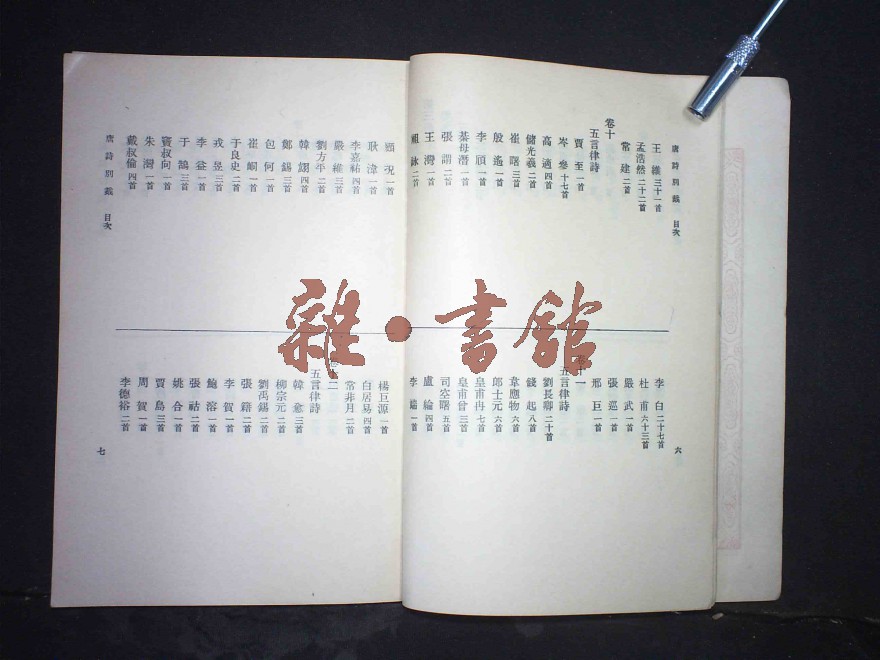 唐詩別裁 目次
王維 三十一首
孟浩然 二十二首
常建 二首
卷十
五言律詩
賈至 一首
岑參 十七首
高適 四首
儲光羲 二首
崔曙 三首
殷遙 一首
李頎 一首
綦毋潛 一首
張謂 二首
王灣 一首
祖詠 二首
李白 二十七首
杜甫 六十三首
嚴武 一首
張巡 一首
邢巨 一首
卷十一
五言律詩
劉長卿 二十首
錢起 八首
韋應物 六首
郎士元 六首
皇甫冉 七首
皇甫曾 三首
司空曙 五首
盧綸 四首
李端 一首
六
顧況 一首
耿湋 一首
李嘉祐 四首
嚴維 三首
劉方平 二首
韓翃 四首
鄭錫 三首
包何 一首
崔峒 一首
于良史 二首
戎昱 三首
李益 一首
于鵠 三首
竇叔向 一首
朱灣 一首
戴叔倫 四首
唐詩別裁 目次
楊巨源 一首
白居易 四首
常非月 二首
二
五言律詩
韓愈 三首
柳宗元 二首
劉禹錫 二首
張籍 二首
李賀 一首
鮑溶 一首
張祜 二首
姚合 一首
賈島 三首
周賀 一首
李德裕 二首
七
雜·書館